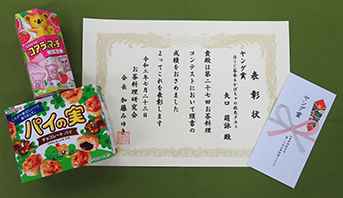 コアラのマーチ
パイの実
チョコレート パイ
表彰状
ヤング賞
矢口 殿
貴殿は第二十七回お茶料理
コンテストにおいて頭書の
成績をおさめました
よってこれを表彰します
令和三年七月二十三日
お茶料理研究会
会長 加藤みゆき
ヤング賞